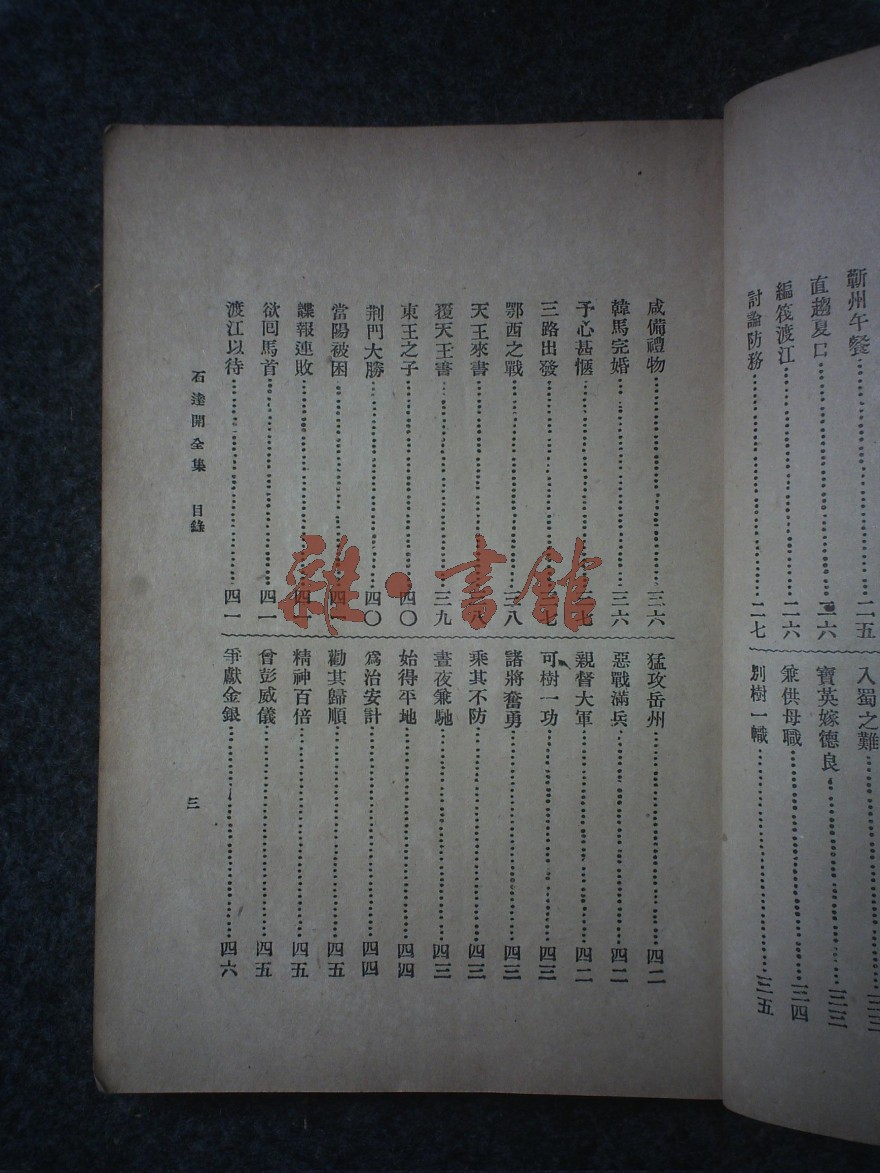 蘄州午餐 二五
直趨夏口 二六
編筏渡江 二六
討論防務 二七
入蜀之難 三三
寶英嫁德良 三三
兼供母職 三四
別樹一幟 三五
咸備禮物 三六
韓馬完婚 三六
予心甚愜 三七
三路出發 三七
鄂西之戰 三八
天王來書 三八
覆天王書 三九
東王之子 四〇
荆門大勝 四〇
當陽被困 四一
諜報連敗 四一
欲回馬首 四一
渡江以待 四一
猛攻岳州 四二
惡戰滿兵 四二
親督大軍 四二
可樹一功 四三
諸將奮勇 四三
乘其不防 四三
晝夜兼馳 四三
始得平地 四四
爲治安計 四四
勸其歸順 四五
精神百倍 四五
曾彭威儀 四五
爭獻金銀 四六
石達開全集 目錄
三
雜·書館